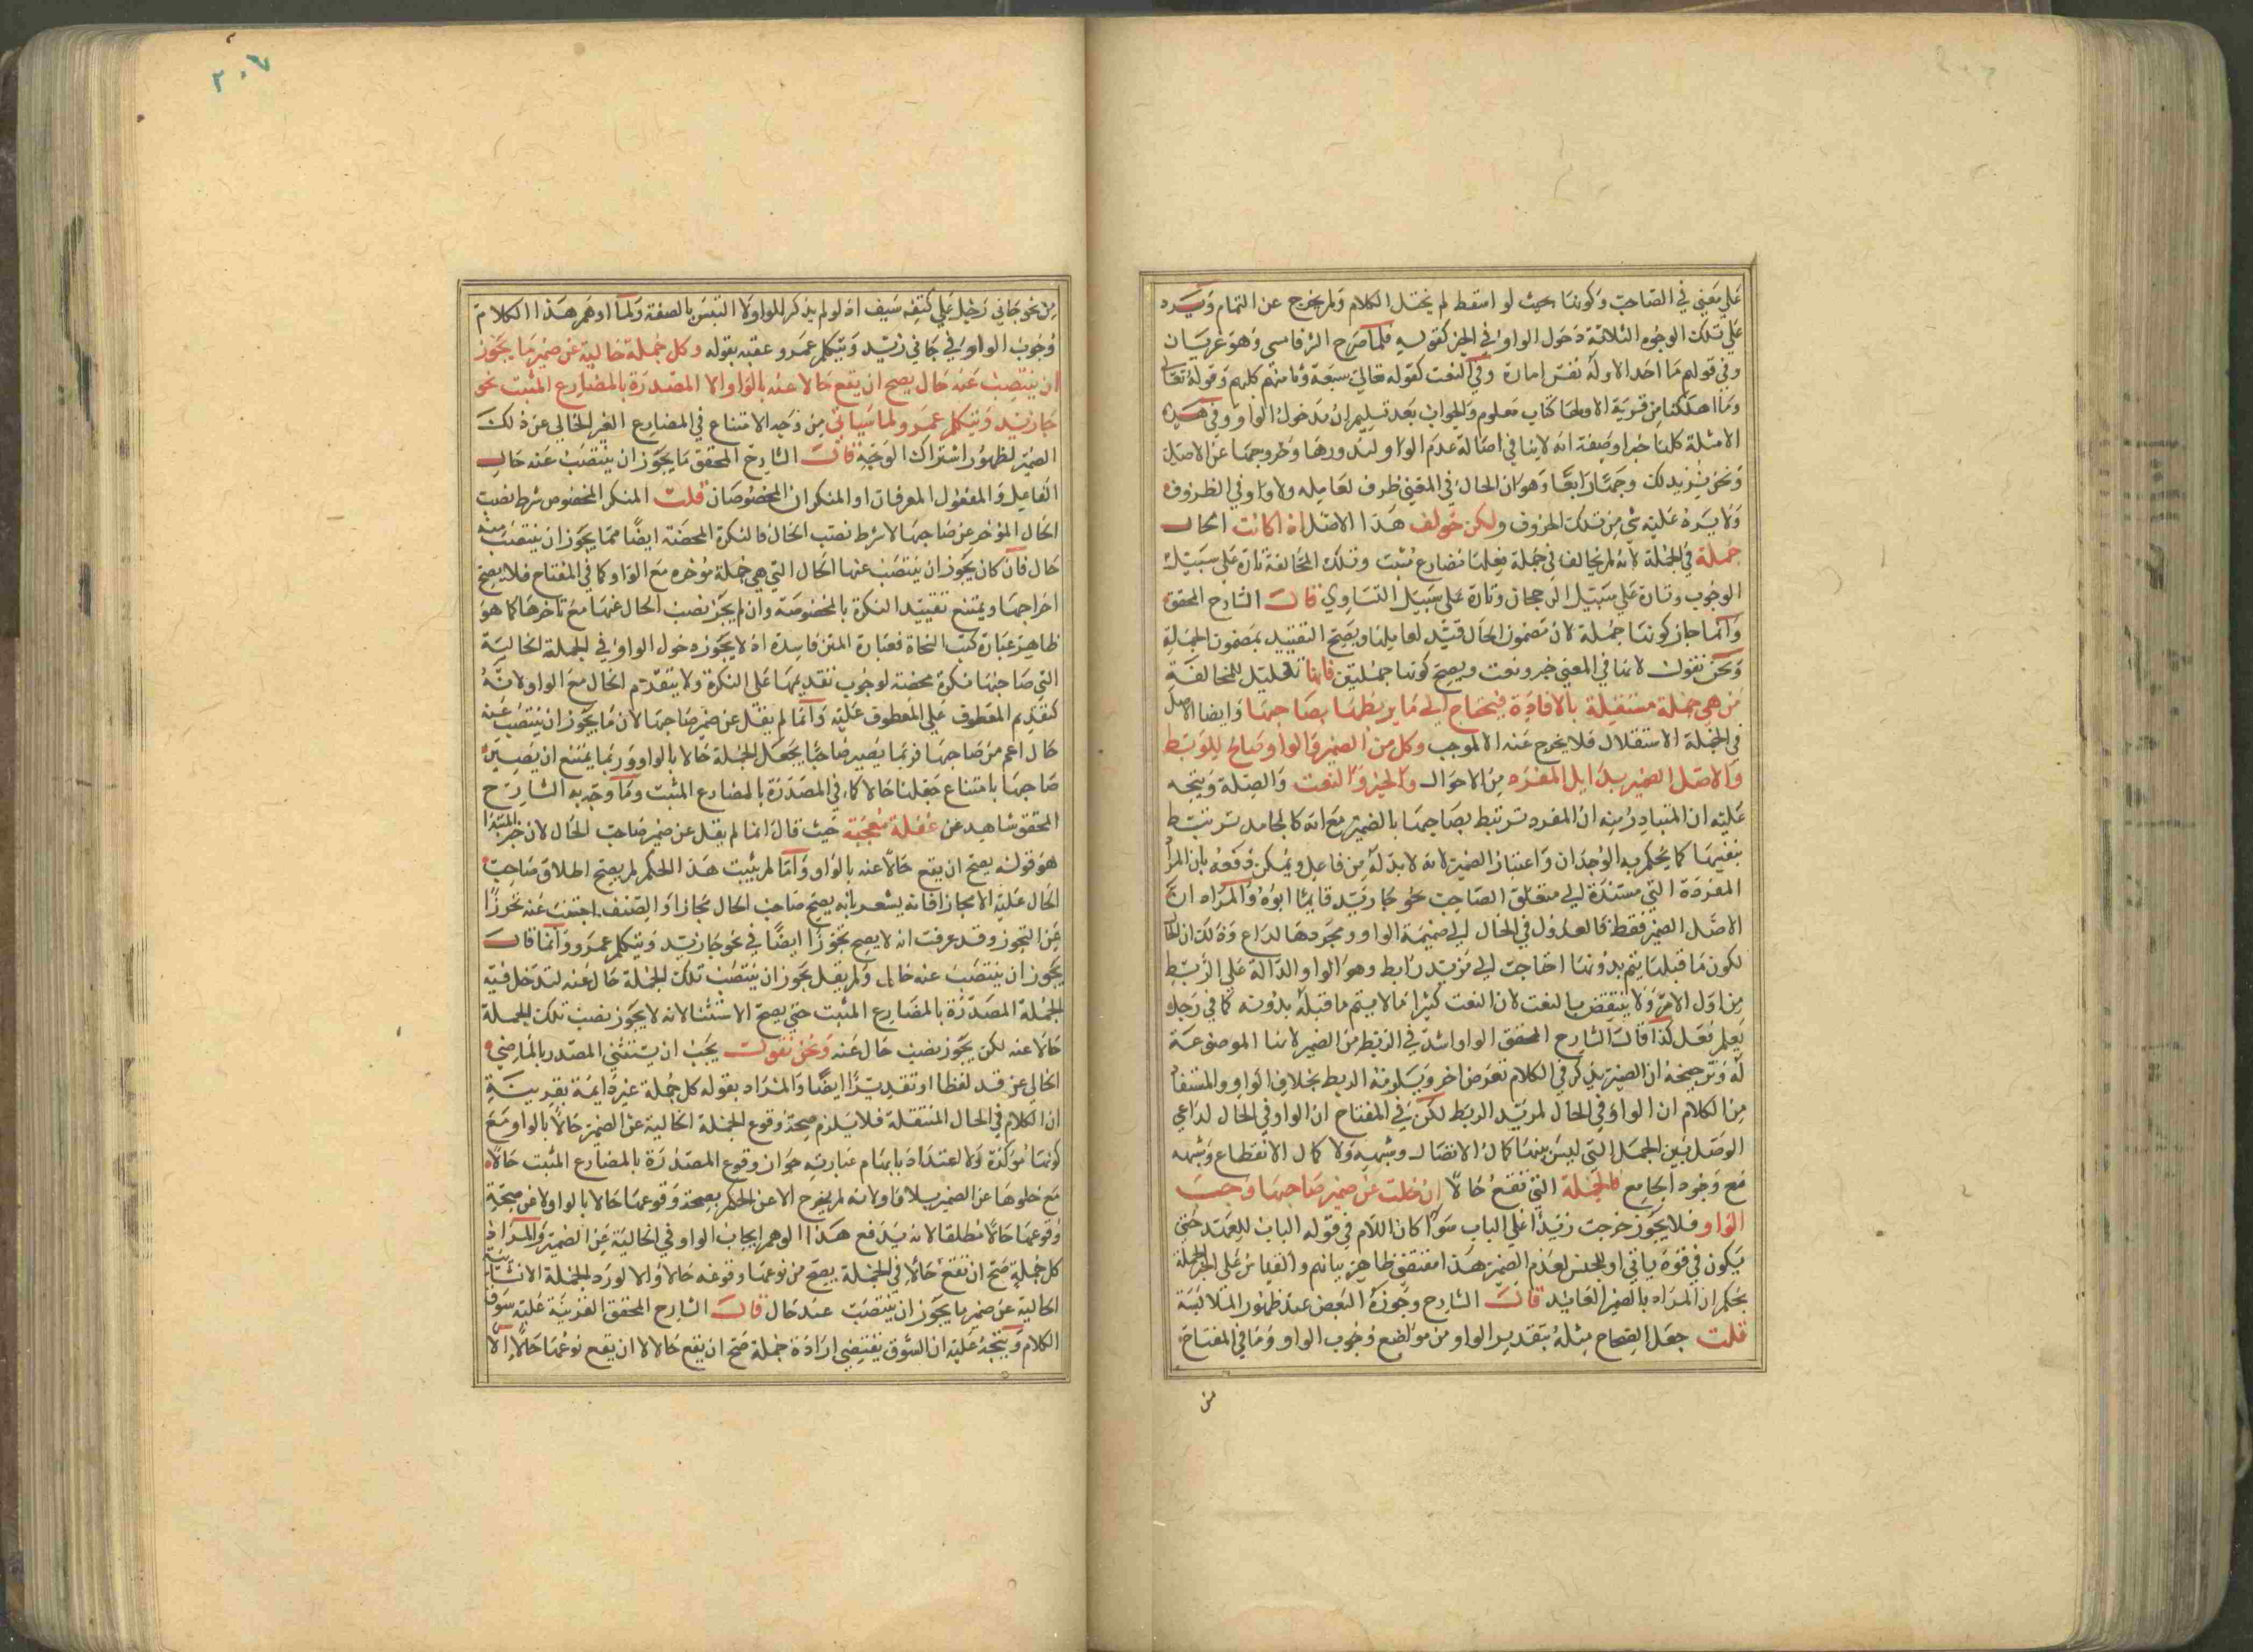 على معنى في الصاحب وكونها بحيث لو اسقط لم يختل الكلام ولم يخرج عن التمام ويرد
على تلك الوجوه الثلاثة دخول الواو في الخبر كقوله فلما صرح الشر فامسى وهو عريان
وفي قولهم ما احد الا وله نفس امارة وفي النعت كقوله تعالى سبعة وثامنهم كلبهم وقوله تعالى
وما اهلكنا من قرية الا ولها كتاب معلوم والجواب بعد تسليم ان مدخول الواو في هذه
الامثلة كلها خبرا وصفة انه لا ينافي اصالة عدم الواو لندورها وخروجها عن الاصل
ونحن نزيد لك وجها رابعا وهو ان الحال في المعنى ظرف لعامله ولا واو في الظروف
ولا يرد عليه شي من تلك الحروف ولكن خولف هذا الاصل اذا كانت الحال
جملة في الجملة لانه لم يخالف في جملة فعلها مضارع مثبت وتلك المخالفة تارة على سبيل
الوجوب وتارة على سبيل الرجحان وتارة على سبيل التساوي قال الشارح المحقق
وانما جاز كونها جملة لان مضمون الحال قيد لعاملها ويصح التقييد بمضمون الجملة
ونحن نقول لانها في المعنى خبر ونعت ويصح كونهما جملتين فانها تعليل للمخالفة
من هي جملة مستقلة بالافادة فيحتاج الى ما يربطها بصاحبها وايضا الاصل
في الجملة الاستقلال فلا يخرج عنه الا لموجب وكل من الضمير والواو صالح للربط
والاصل الضمير بدليل المفردة من الاحوال والخبر والنعت والصلة ويتجه
عليه ان المتبادر منه ان المفرد ترتبط بصاحبها بالضمير مع انه كالجامد ترتبط
بنفسها كما يحكم به الوجدان واعتبار الضمير لانه لا بد له من فاعل ويمكن دفعه بان المراد
المفردة التي مستندة الى متعلق الصاحب نحو جا زيد قايما ابوه والمراد ان
الاصل الضمير فقط فالعدول في الحال الى ضميمة الواو ومجردها لداع وذلك ان الحال
لكون ما قبلها يتم بدونها احتاجت الى مزيد رابط وهو الواو الدالة على الربط
من اول الامر ولا ينتقض بالنعت لان النعت كثيرا ما لا يتم ما قبله بدونه كما في رجل
يعلم فعل كذا قال الشارح المحقق الواو اشد في الربط من الضمير لانها الموضوعة
له وترجيحه ان الضمير يذكر في الكلام لغرض اخر ويلزمه الربط بخلاف الواو والمستفاد
من الكلام ان الواو في الحال لمزيد الربط لكن في المفتاح ان الواو في الحال لداعي
الوصل بين الجمل التي ليس بينها كمال الاتصال وشبهه ولا كمال الانقطاع وشبهه
مع وجود الجامع فالجملة التي تقع حالا ان خلت عن ضمير صاحبها وجب
الواو فلا يجوز خرجت زيد على الباب سوا كان اللام في قوله الباب للعهد حتى
يكون في قوة بابي او للجنس لعدم الضمير هذا مقتضى ظاهر بيانهم والقياس على الخبر الجملة
يحكم ان المراد بالضمير العايد قال الشارح وجوزه البعض عند ظهور الملابسة
قلت جعل الصحاح مثله بتقدير الواو من مواضع وجوب الواو وما في المفتاح
من
٢٠٧
من نحو جاني رجل على كتفه سيف اذ لو لم يذكر الواو لالتبس بالصفة ولما اوهم هذا الكلام
وجوب الواو في جاني زيد ويتكلم عمرو عقبه بقوله وكل جملة خالية عن ضمير ما يجوز
ان ينتصب عنه حال يصح ان يقع حالا عنه بالواو الا المصدرة بالمضارع المثبت نحو
جا زيد ويتكلم عمرو لما سياتي من وجه الامتناع في المضارع الغير الخالي عن ذلك
الضمير لظهور اشتراك الوجه قال الشارح المحقق ما يجوز ان ينتصب عنه حال
الفاعل والمفعول المعرفان او المنكران المخصوصان قلت المنكر المخصوص شرط نصب
الحال المؤخر عن صاحبها لا شرط نصب الحال فالنكرة المحضة ايضا مما يجوز ان ينتصب عنه
حال فان كان يجوز ان ينتصب عنها الحال التي هي جملة مؤخره مع الواو كما في المفتاح فلا يصح
اخراجها ويمتنع تقييد النكرة بالمخصوصة وان لم يجز نصب الحال عنها مع تاخرها كما هو
ظاهر عبارة كتب النحاة فعبارة المتن فاسدة اذ لا يجوز دخول الواو في الجملة الحالية
التي صاحبها نكرة محضة لوجوب تقديمها على النكرة ولا يتقدم الحال مع الواو لانه
كتقديم المعطوف على المعطوف عليه وانما لم يقل عن ضمير صاحبها لان ما يجوز ان ينتصب عنه
حال اعم من صاحبها فربما يصير صاحبا بجعل الجملة حالا بالواو وربما يمتنع ان يصير
صاحبها بامتناع جعلها حالا كما في المصدرة بالمضارع المثبت وما وجه به الشارح
المحقق شاهد عن غفلة معجبة حيث قال انما لم يقل عن ضمير صاحب الحال لان خبر المبتدا
هو قوله يصح ان يقع حالا عنه بالواو وانما لم يثبت هذا الحكم لم يصح اطلاق صاحب
الحال عليه الا مجازا فانه يشعر بانه يصح صاحب الحال مجازا والمصنف اجتنب عنه تحرزا
عن التجوز وقد عرفت انه لا يصح تجوزا ايضا في نحو جا زيد ويتكلم عمرو وانما قال
يجوز ان ينتصب عنه حال ولم يقل يجوز ان ينتصب تلك الجملة حال عنه لتدخل فيه
الجملة المصدرة بالمضارع المثبت حتى يصح الاستثنا لانه لا يجوز نصب تلك الجملة
حالا عنه لكن يجوز نصب حال عنه ونحن نقول يجب ان يستثنى المصدر بالماضي
الخالي عن قد لفظا او تقديرا ايضا والمراد بقوله كل جملة غير دايمة بقرينة
ان الكلام في الحال المنتقلة فلا يلزم صحة وقوع الجملة الخالية عن الضمير حالا بالواو مع
كونها مؤكدة ولا اعتداد بايهام عبارته جواز وقوع المصدرة بالمضارع المثبت حالا
مع خلوها عن الضمير بلا واو لانه لم يخرج الا عن الحكم بصحة وقوعها حالا بالواو لا عن صحة
وقوعها حالا مطلقا لانه يدفع هذا الوهم ايجاب الواو في الخالية عن الضمير والمراد
كل جملة صح ان تقع حالا في الجملة يصح من نوعها وقوعه حالا والا لورد الجملة الانشائية
الخالية عن ضمير ما يجوز ان ينتصب عنه حال قال الشارح المحقق القرينة عليه سوق
الكلام ويتجه عليه ان السوق يقتضي ارادة جملة صح ان يقع حالا لا ان يقع نوعها حالا الا